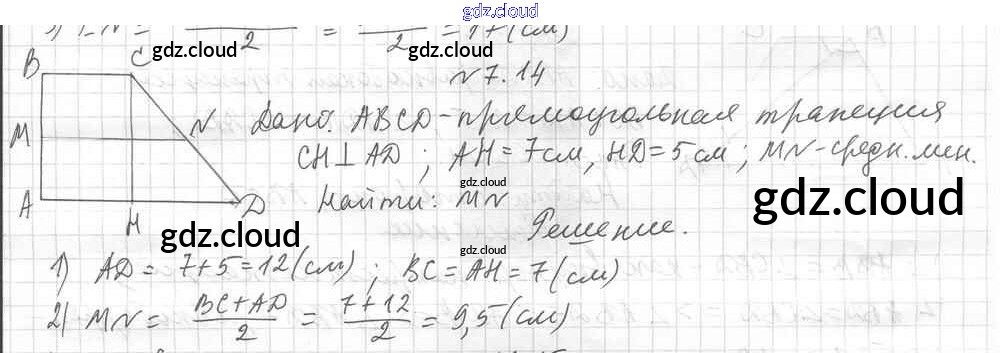 gdz.cloud
2 = 2 = 17 (см)
gdz.cloud gdz.cloud
N 7.14
B C
M N
A H D
Дано: ABCD - прямоугольная трапеция
CH ⊥ AD ; AH = 7 см, HD = 5 см ; MN - средн. лин.
gdz.cloud
Найти: MN
gdz.cloud
Решение.
gdz.cloud
gdz.cloud
1) AD = 7 + 5 = 12 (см) ; BC = AH = 7 (см)
2) MN = (BC + AD)/2 = (7 + 12)/2 = 9,5 (см)